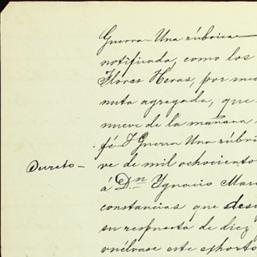 Guerra Una rúbrica
notificada, como los
Flores Heras, por me
nuta agregada, que
nueve de la mañana
fé J Guerra Una rúbri
Decreto ve de mil ochocient
á Dn Ygnacio Mar
constancias que des
en respuesta de diez
vuélvase este exhorto